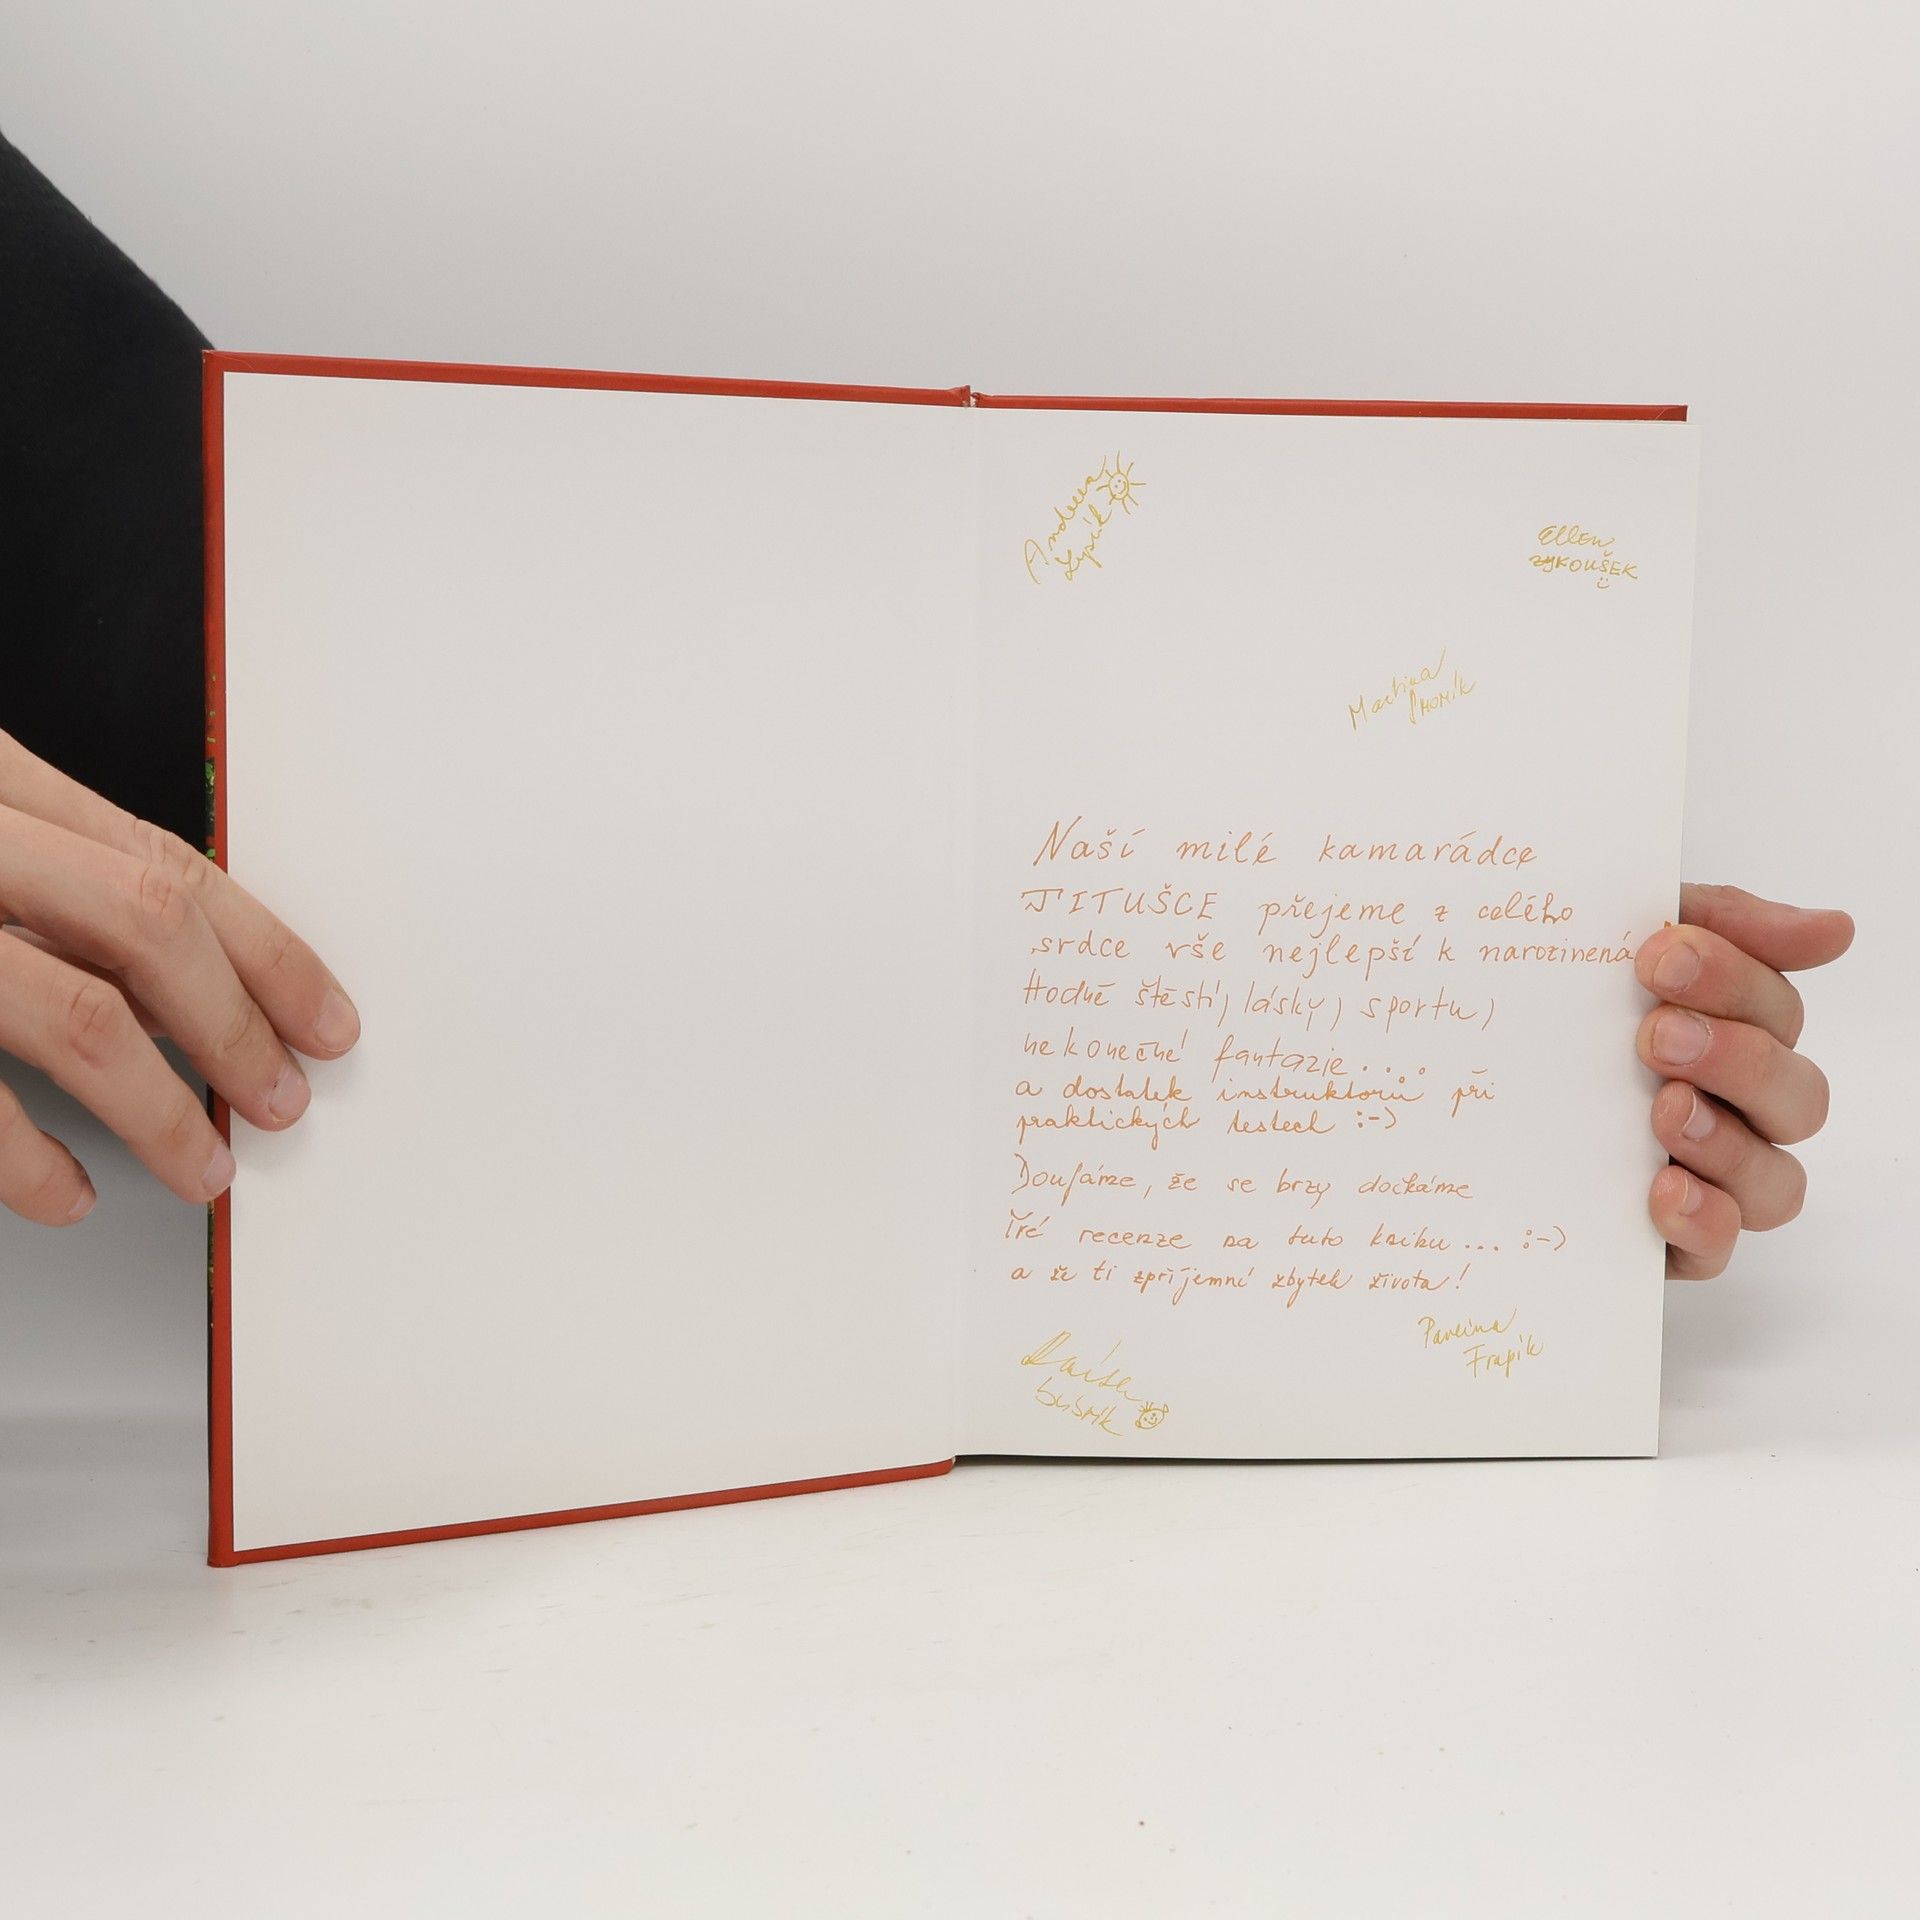 Andrea
Ellen
ZYKOUŠEK
Martina
Naší milé kamarádce
TITUŠCE přejeme z celého
srdce vše nejlepší k narozinená
Hodně štěstí, lásky, sportu,
nekonečné fantazie....
a dostatek instruktorů při
praktických testech :-)
Doufáme, že se brzy dočkáme
Tvé recenze na tuto knihu... :-)
a že ti zpříjemní zbytek života!
Pavlína
Frapík